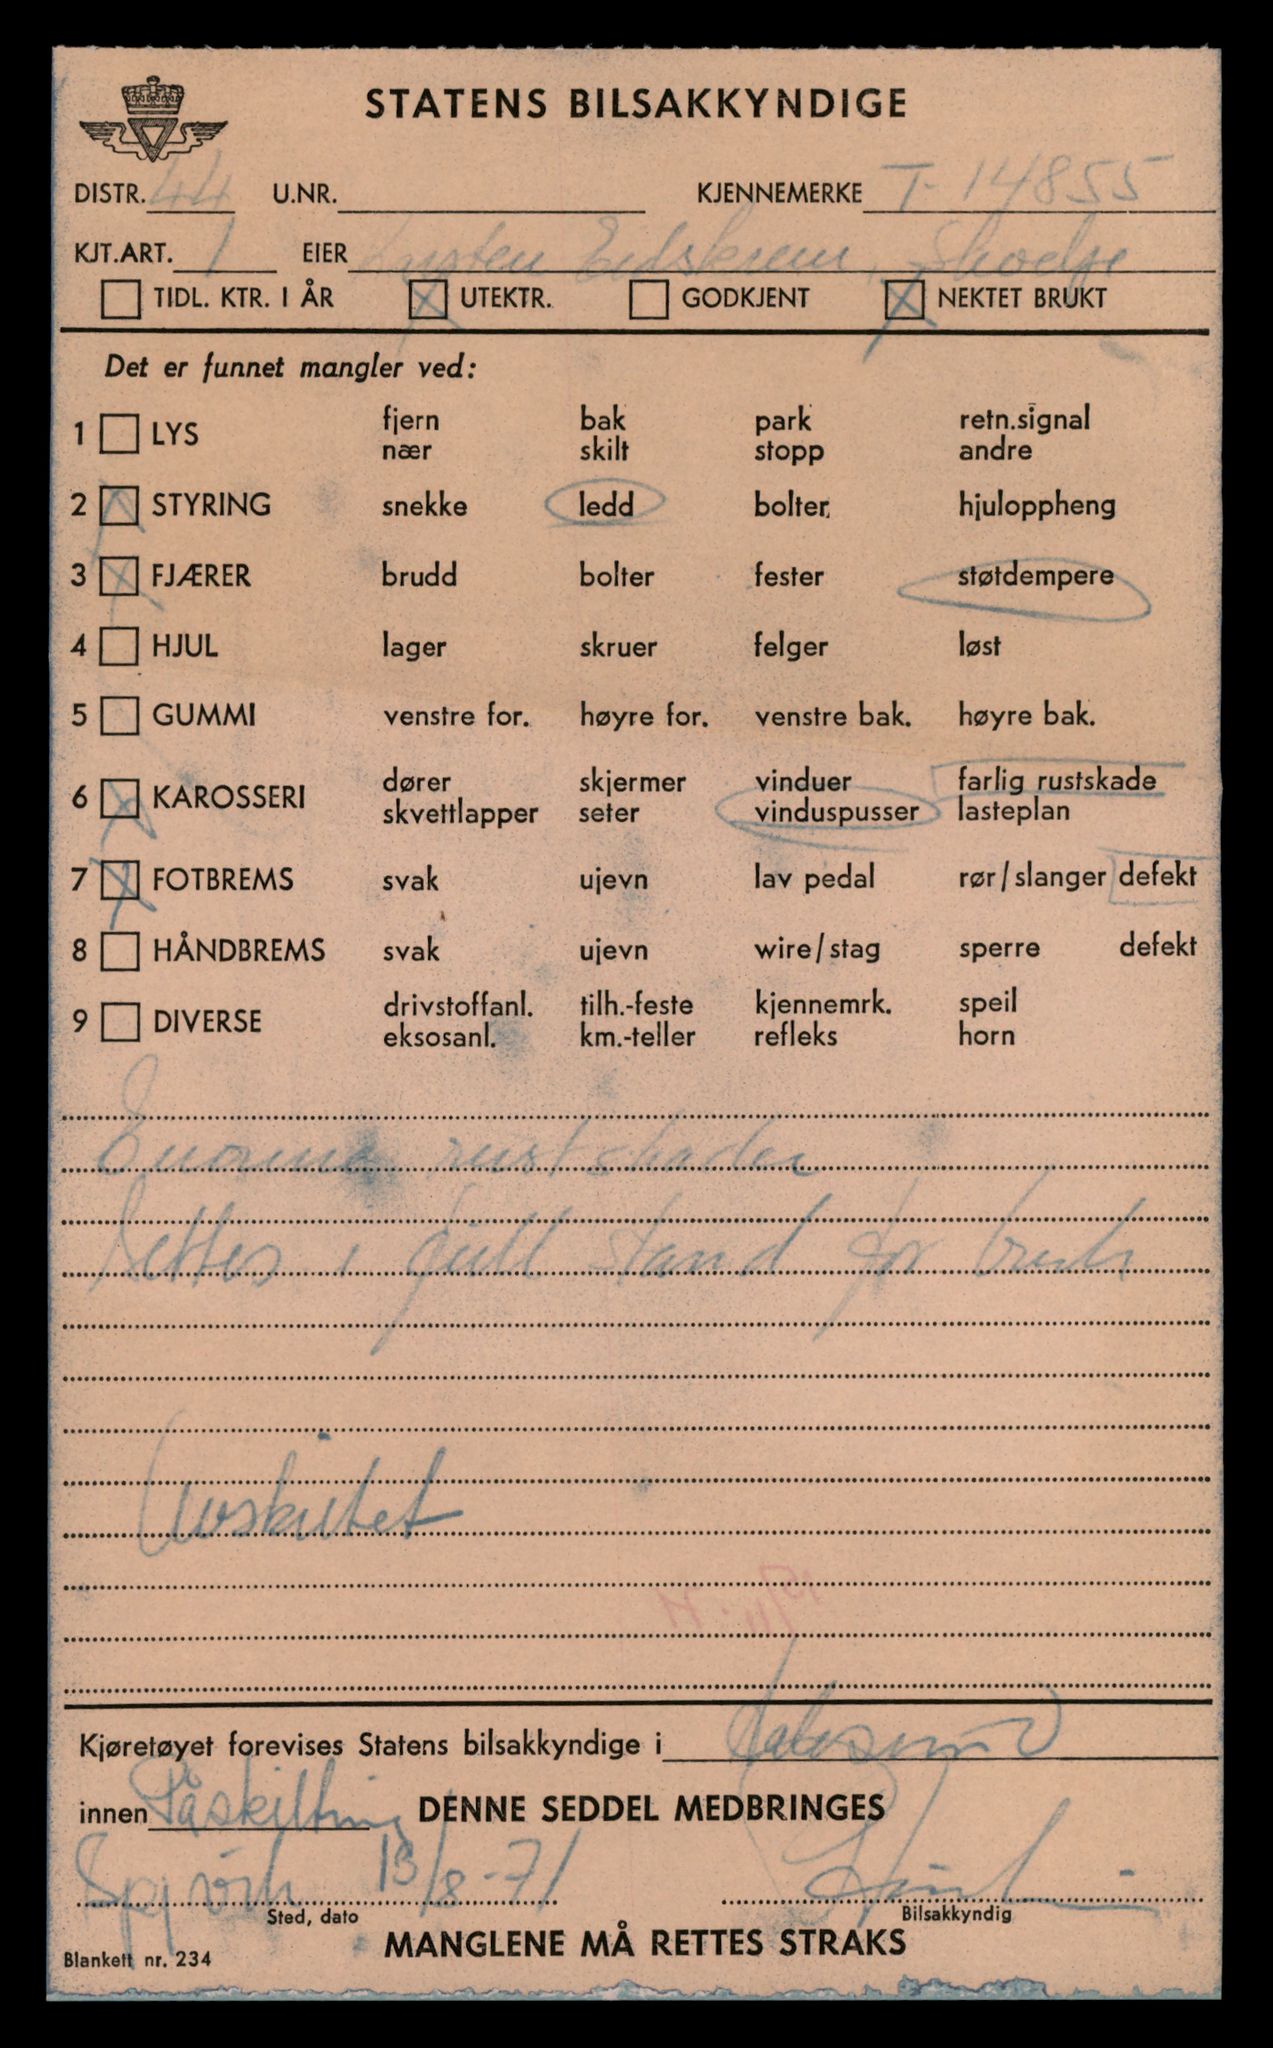 STATENS BILSAKKYNDIGE
DISTR. 44 U.NR. KJENNEMERKE T-14855
KJT.ART. 1 EIER Eidskrem, Skodje
TIDL. KTR. I ÅR X UTEKTR. GODKJENT X NEKTET BRUKT
Det er funnet mangler ved:
1 LYS fjern bak park retn.signal
nær skilt stopp andre
2 X STYRING snekke ledd bolter hjuloppheng
3 X FJÆRER brudd bolter fester støtdempere
4 HJUL lager skruer felger løst
5 GUMMI venstre for. høyre for. venstre bak. høyre bak.
6 X KAROSSERI dører skjermer vinduer farlig rustskade
skvettlapper seter vinduspusser lasteplan
7 X FOTBREMS svak ujevn lav pedal rør/slanger defekt
8 HÅNDBREMS svak ujevn wire/stag sperre defekt
9 DIVERSE drivstoffanl. tilh.-feste kjennemrk. speil
eksosanl. km.-teller refleks horn
Enorme rustskader
Settes i full stand før bruk
Avskiltet
Kjøretøyet forevises Statens bilsakkyndige i Aalesund
innen Påskilting DENNE SEDDEL MEDBRINGES
13/8-71
Sted, dato Bilsakkyndig
MANGLENE MÅ RETTES STRAKS
Blankett nr. 234